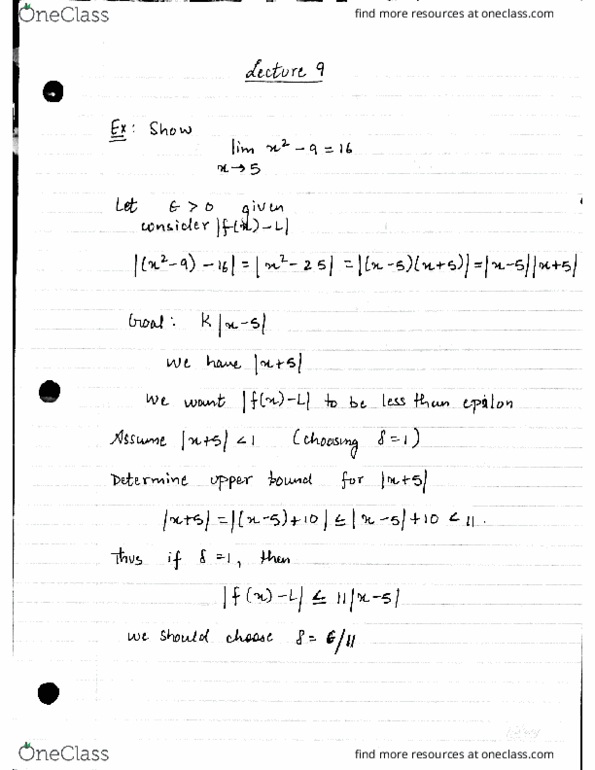 OneClass
find more resources at oneclass.com
Lecture 9
Ex: Show
lim x² - 9 = 16
x → 5
Let ϵ > 0 given
consider |f(x) - L|
|(x² - 9) - 16| = |x² - 25| = |(x - 5)(x + 5)| = |x - 5||x + 5|
Goal: K |x - 5|
We have |x + 5|
We want |f(x) - L| to be less than epsilon
Assume |x + 5| < 1 (choosing δ = 1)
Determine upper bound for |x + 5|
|x + 5| = |(x - 5) + 10| ≤ |x - 5| + 10 < 11.
Thus if δ = 1, then
|f(x) - L| ≤ 11|x - 5|
we should choose δ = ϵ/11
OneClass
find more resources at oneclass.com